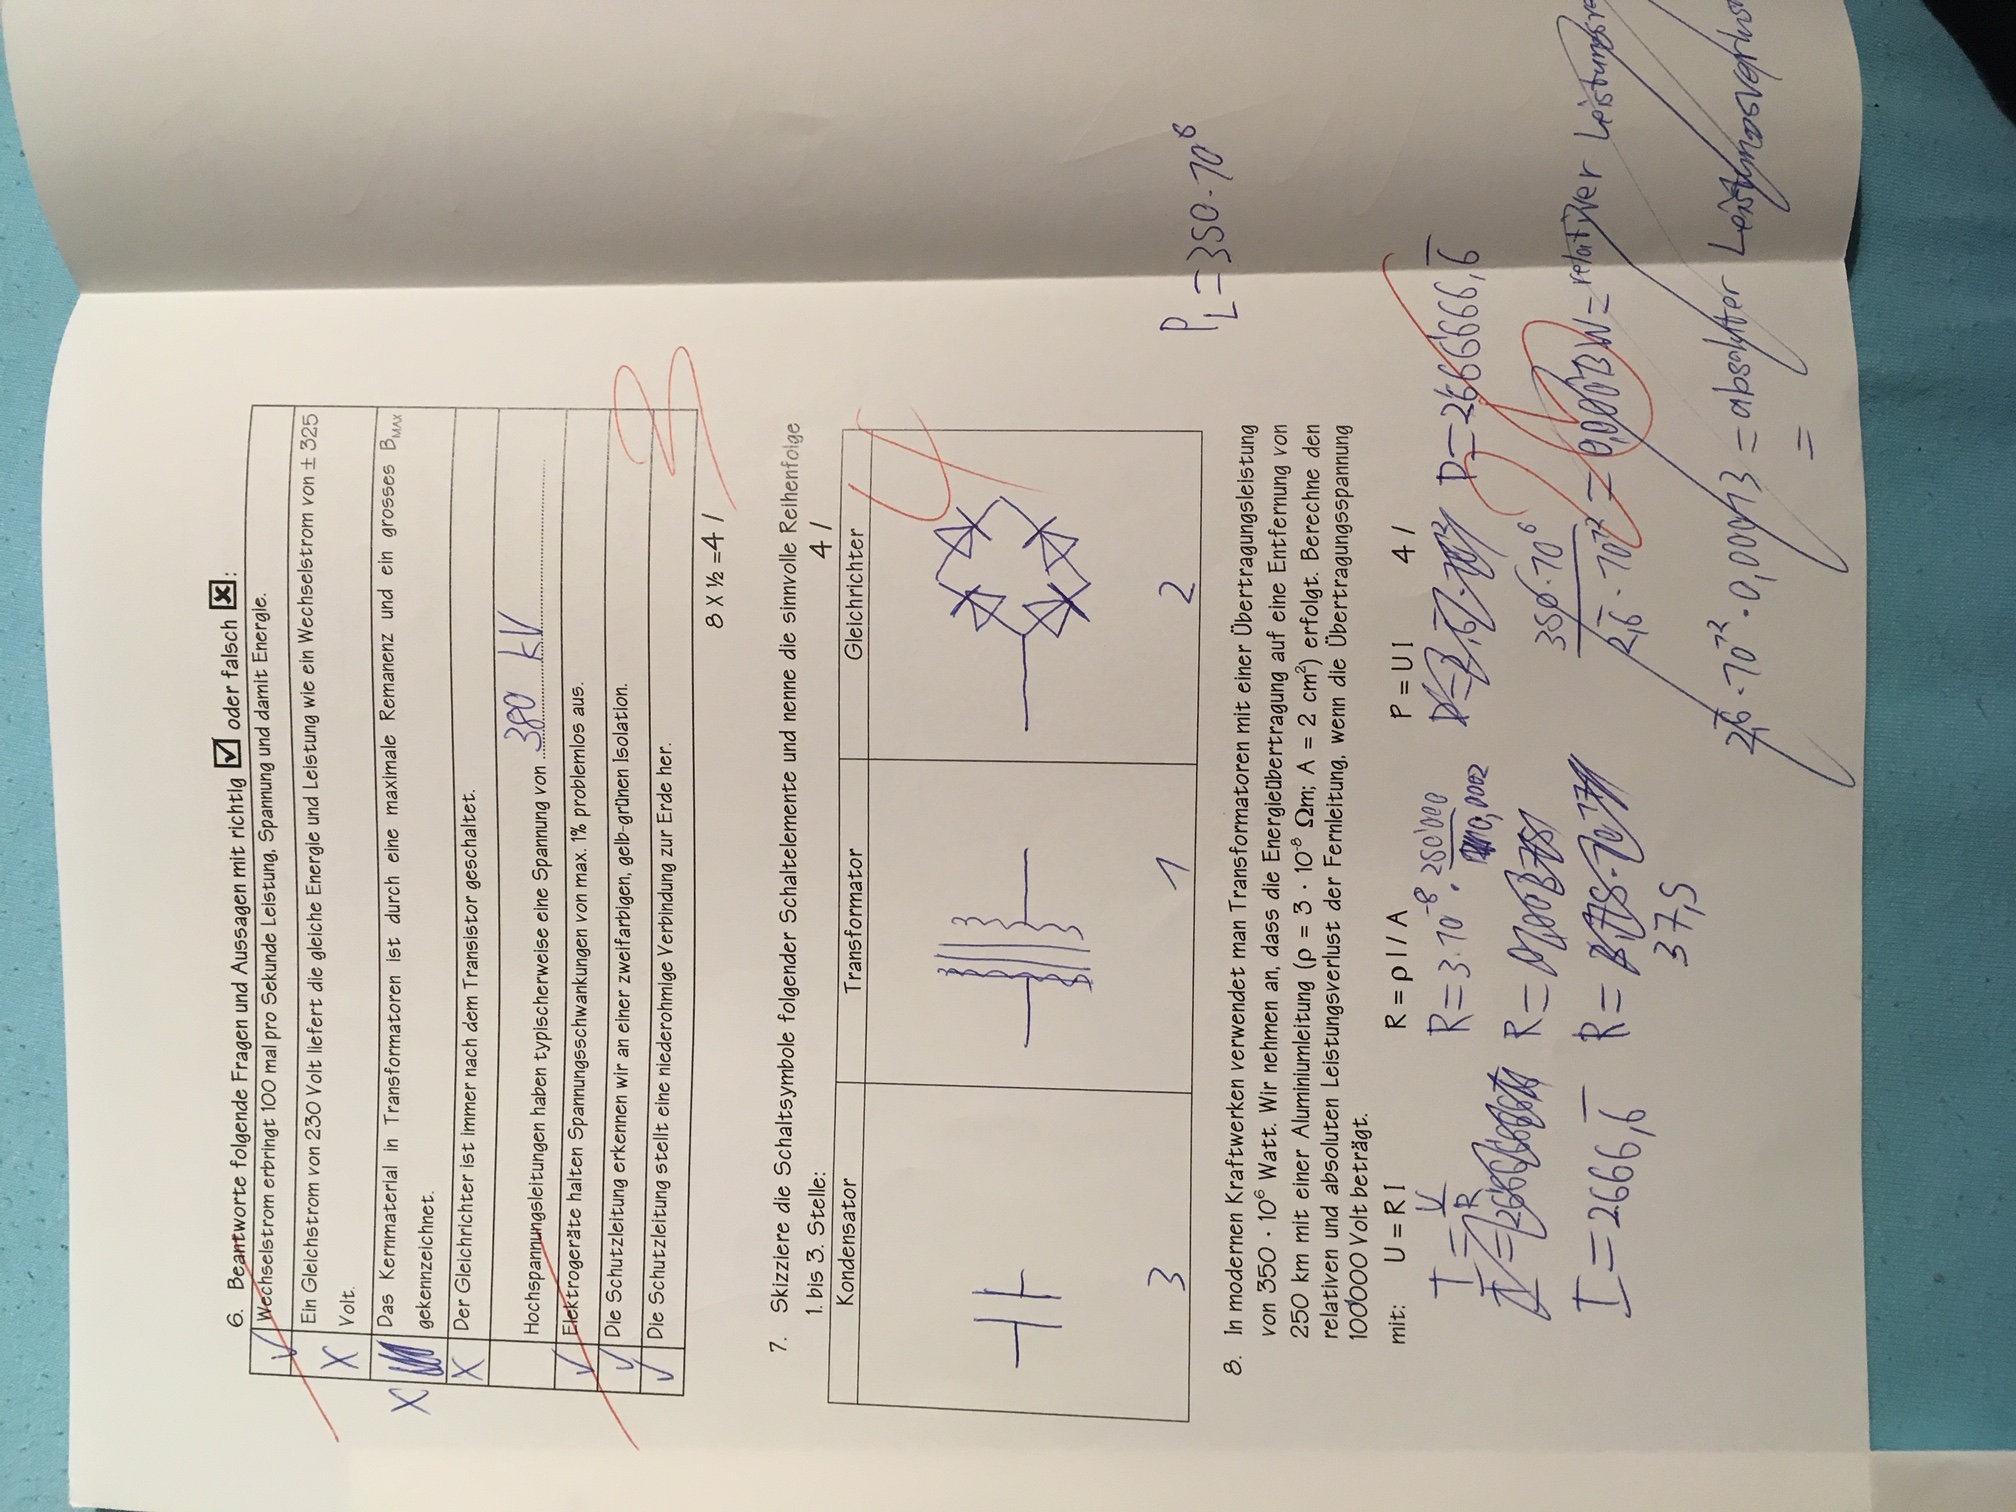 6. Beantworte folgende Fragen und Aussagen mit richtig ☑ oder falsch ☒:
✓ Wechselstrom erbringt 100 mal pro Sekunde Leistung, Spannung und damit Energie.
Ein Gleichstrom von 230 Volt liefert die gleiche Energie und Leistung wie ein Wechselstrom von ± 325
X Volt.
Das Kernmaterial in Transformatoren ist durch eine maximale Remanenz und ein grosses BMAX
X gekennzeichnet.
X Der Gleichrichter ist immer nach dem Transistor geschaltet.
Hochspannungsleitungen haben typischerweise eine Spannung von 380 kV
✓ Elektrogeräte halten Spannungsschwankungen von max. 1% problemlos aus.
✓ Die Schutzleitung erkennen wir an einer zweifarbigen, gelb-grünen Isolation.
✓ Die Schutzleitung stellt eine niederohmige Verbindung zur Erde her.
3
8 X ½ =4 /
7. Skizziere die Schaltsymbole folgender Schaltelemente und nenne die sinnvolle Reihenfolge
1. bis 3. Stelle: 4 /
Kondensator Transformator Gleichrichter
4
3 1 2
P_L = 350 · 10⁶
8. In modernen Kraftwerken verwendet man Transformatoren mit einer Übertragungsleistung
von 350 · 10⁶ Watt. Wir nehmen an, dass die Energieübertragung auf eine Entfernung von
250 km mit einer Aluminiumleitung (ρ = 3 · 10⁻⁸ Ωm; A = 2 cm²) erfolgt. Berechne den
relativen und absoluten Leistungsverlust der Fernleitung, wenn die Übertragungsspannung
100'000 Volt beträgt.
mit: U = R I R = ρ l / A P = U I 4 /
I = U/R R = 3 · 10⁻⁸ · 250'000/0,0002 P = 2666666,6̅
R =
I = 2666,6̅ R =
37,5
350 · 10⁶ / 2,6̅ · 10¹² = 0,00013 W = relativer
2,6̅ · 10¹² · 0,00013 = absoluter Leistungsverlus
=